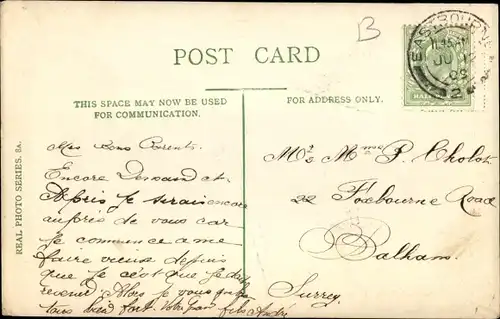 B
POST CARD
EASTBOURNE
11.45 AM
JU 12
05
HALF
THIS SPACE MAY NOW BE USED
FOR COMMUNICATION.
FOR ADDRESS ONLY.
REAL PHOTO SERIES. 8A.
Mes bons Parents
Encore Demain et
Après je serais encore
auprès de vous car
je commence a me
faire vieux depuis
que je
revenir. Alors je vous embr
tous bien fort. Votre fils André
Mr & Mme P. Cholot
22 Foxbourne Road
Balham.
Surrey.